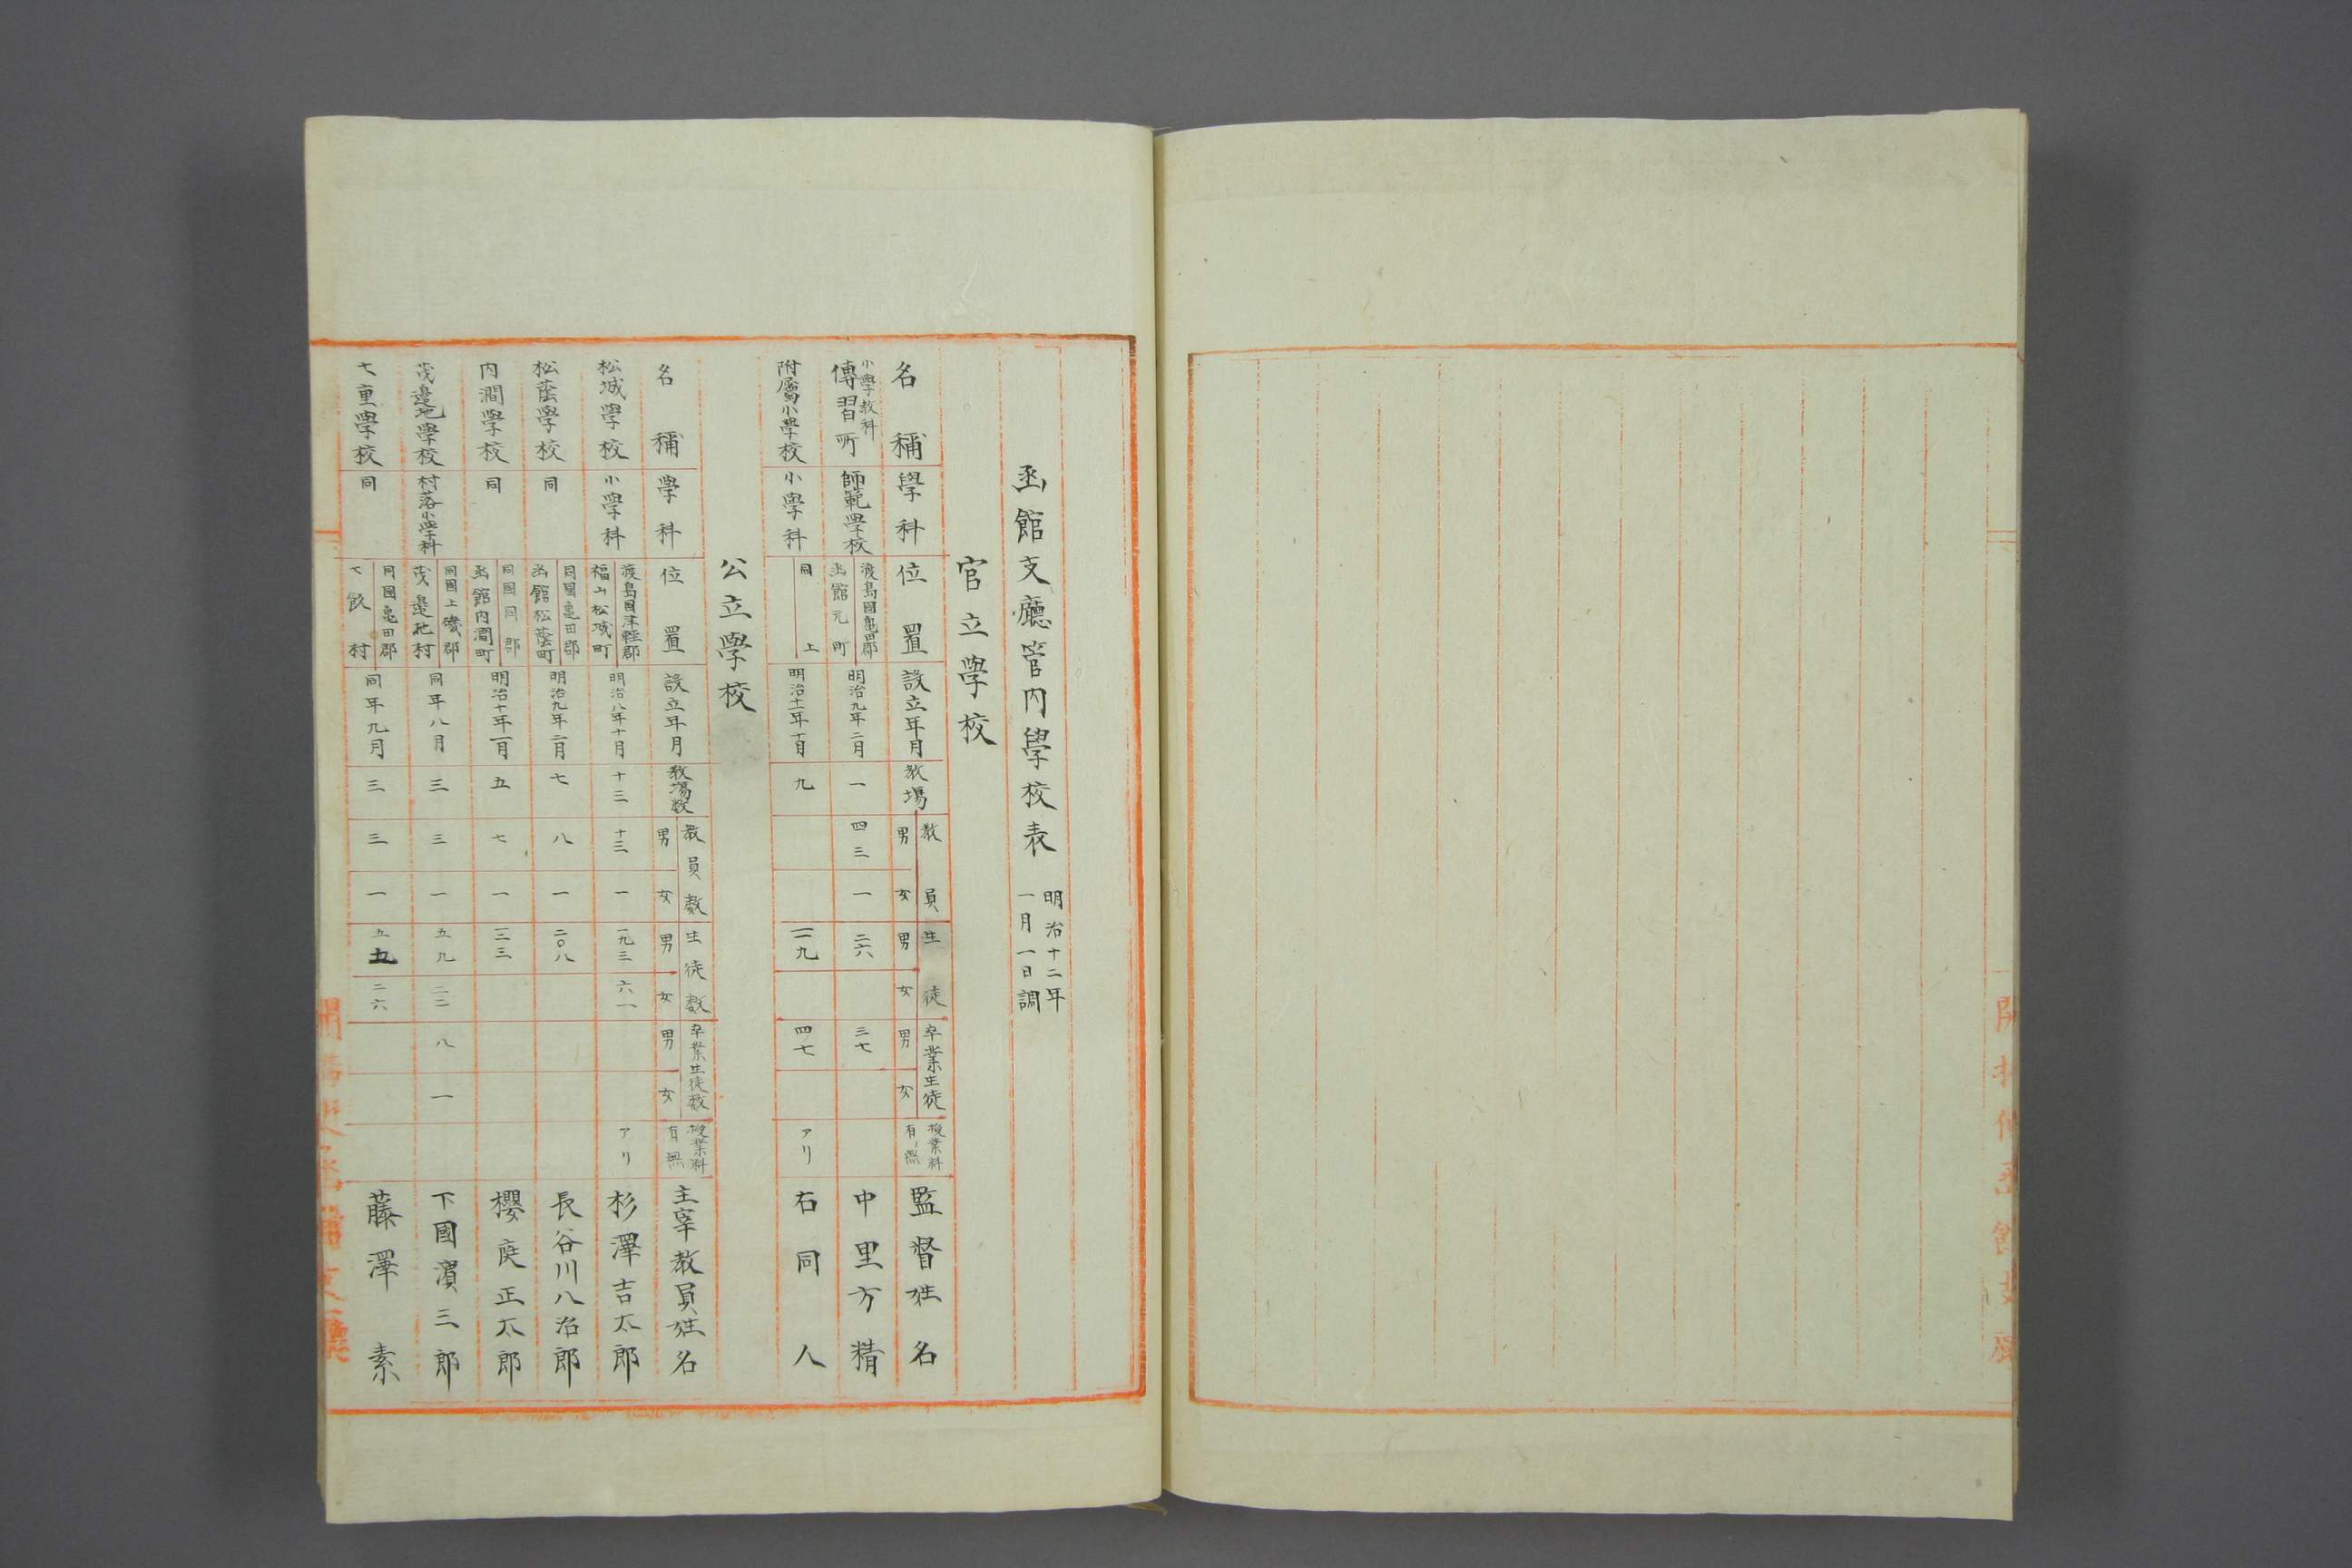 函館支廳管内學校表 明治十二年一月一日調
官立學校
名稱 學科 位置 設立年月 教場 教員 男 女 生徒 男 女 卒業生徒 男 女 授業料有無 監督姓名
小學教科傳習所 師範學校 渡島國亀田郡函館元町 明治九年二月 一 四三 一 二六 三七 中里方精
附屬小學校 小學科 同上 明治十一年十月 九 一二九 四七 アリ 右同人
公立學校
名稱 學科 位置 設立年月 教場数 教員数 男 女 生徒数 男 女 卒業生徒数 男 女 授業料有無 主宰教員姓名
松城學校 小學科 渡島國津軽郡福山松城町 明治八年十月 十三 十三 一 一九三 六一 アリ 杉澤吉太郎
松蔭學校 同 同國亀田郡函館松蔭町 明治九年二月 七 八 一 二〇八 長谷川八治郎
内澗學校 同 同國同郡函館内澗町 明治十年一月 五 七 一 一三三 櫻庭正太郎
茂邊地學校 村落小學科 同國上磯郡茂邊地村 同年八月 三 三 一 五九 二二 八 一 下國濱三郎
七重學校 同 同國亀田郡七飯村 同年九月 三 三 一 五五 二六 藤澤素
開拓使函館支廳